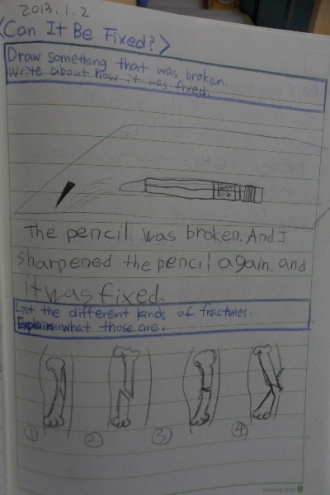 2013.1.2
<Can It Be Fixed?>
Draw something that was broken.
Write about how it was fixed.
The pencil was broken. And I
sharpened the pencil again, and
it was fixed.
List the different kinds of fractures.
Explain what those are.
① ② ③ ④